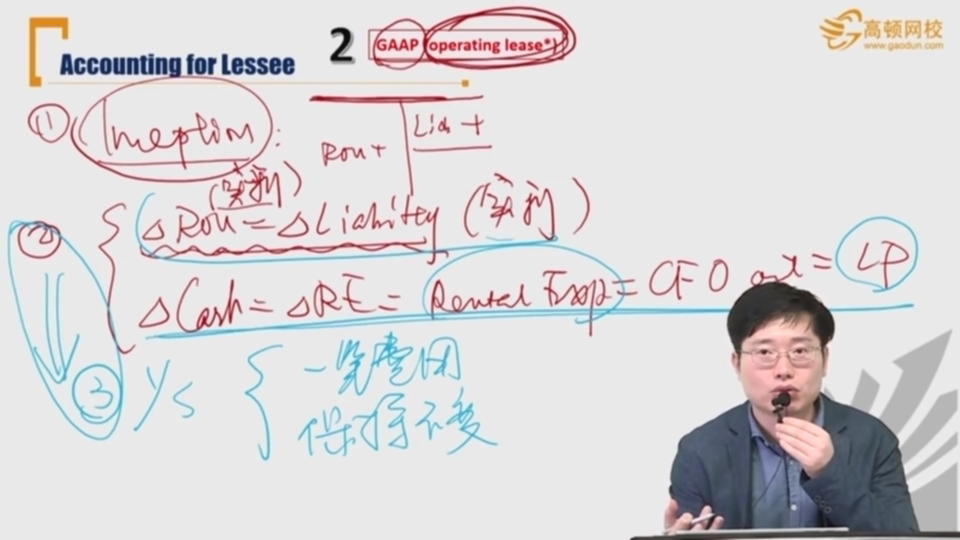 Accounting for Lessee
2 GAAP (operating lease*)
高顿网校
www.gaodun.com
① Inception:
ROU+ Lia+
(实利)
② △ROU = △Liability (实利)
△Cash = △RE = Rental Exp = CFO out = LP
③ I/S
一笔费用
保持不变